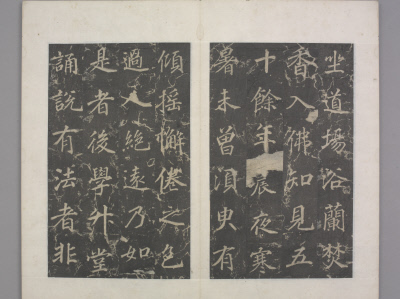 坐道場浴蘭焚
香入佛知見五
十餘年晨夜寒
暑未曾須臾有
傾搖懈倦之色
過人絶遠乃如
是者後學升堂
誦説有法者非